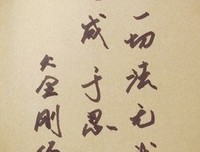 一切法无
成于忍
《金刚